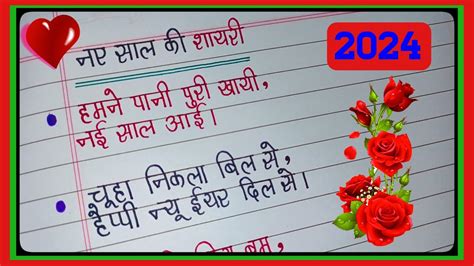 नए साल की शायरी
2024
हमने पानी पुरी खायी,
नई साल आई।
चूहा निकला बिल से,
हैप्पी न्यू ईयर दिल से।
बम,